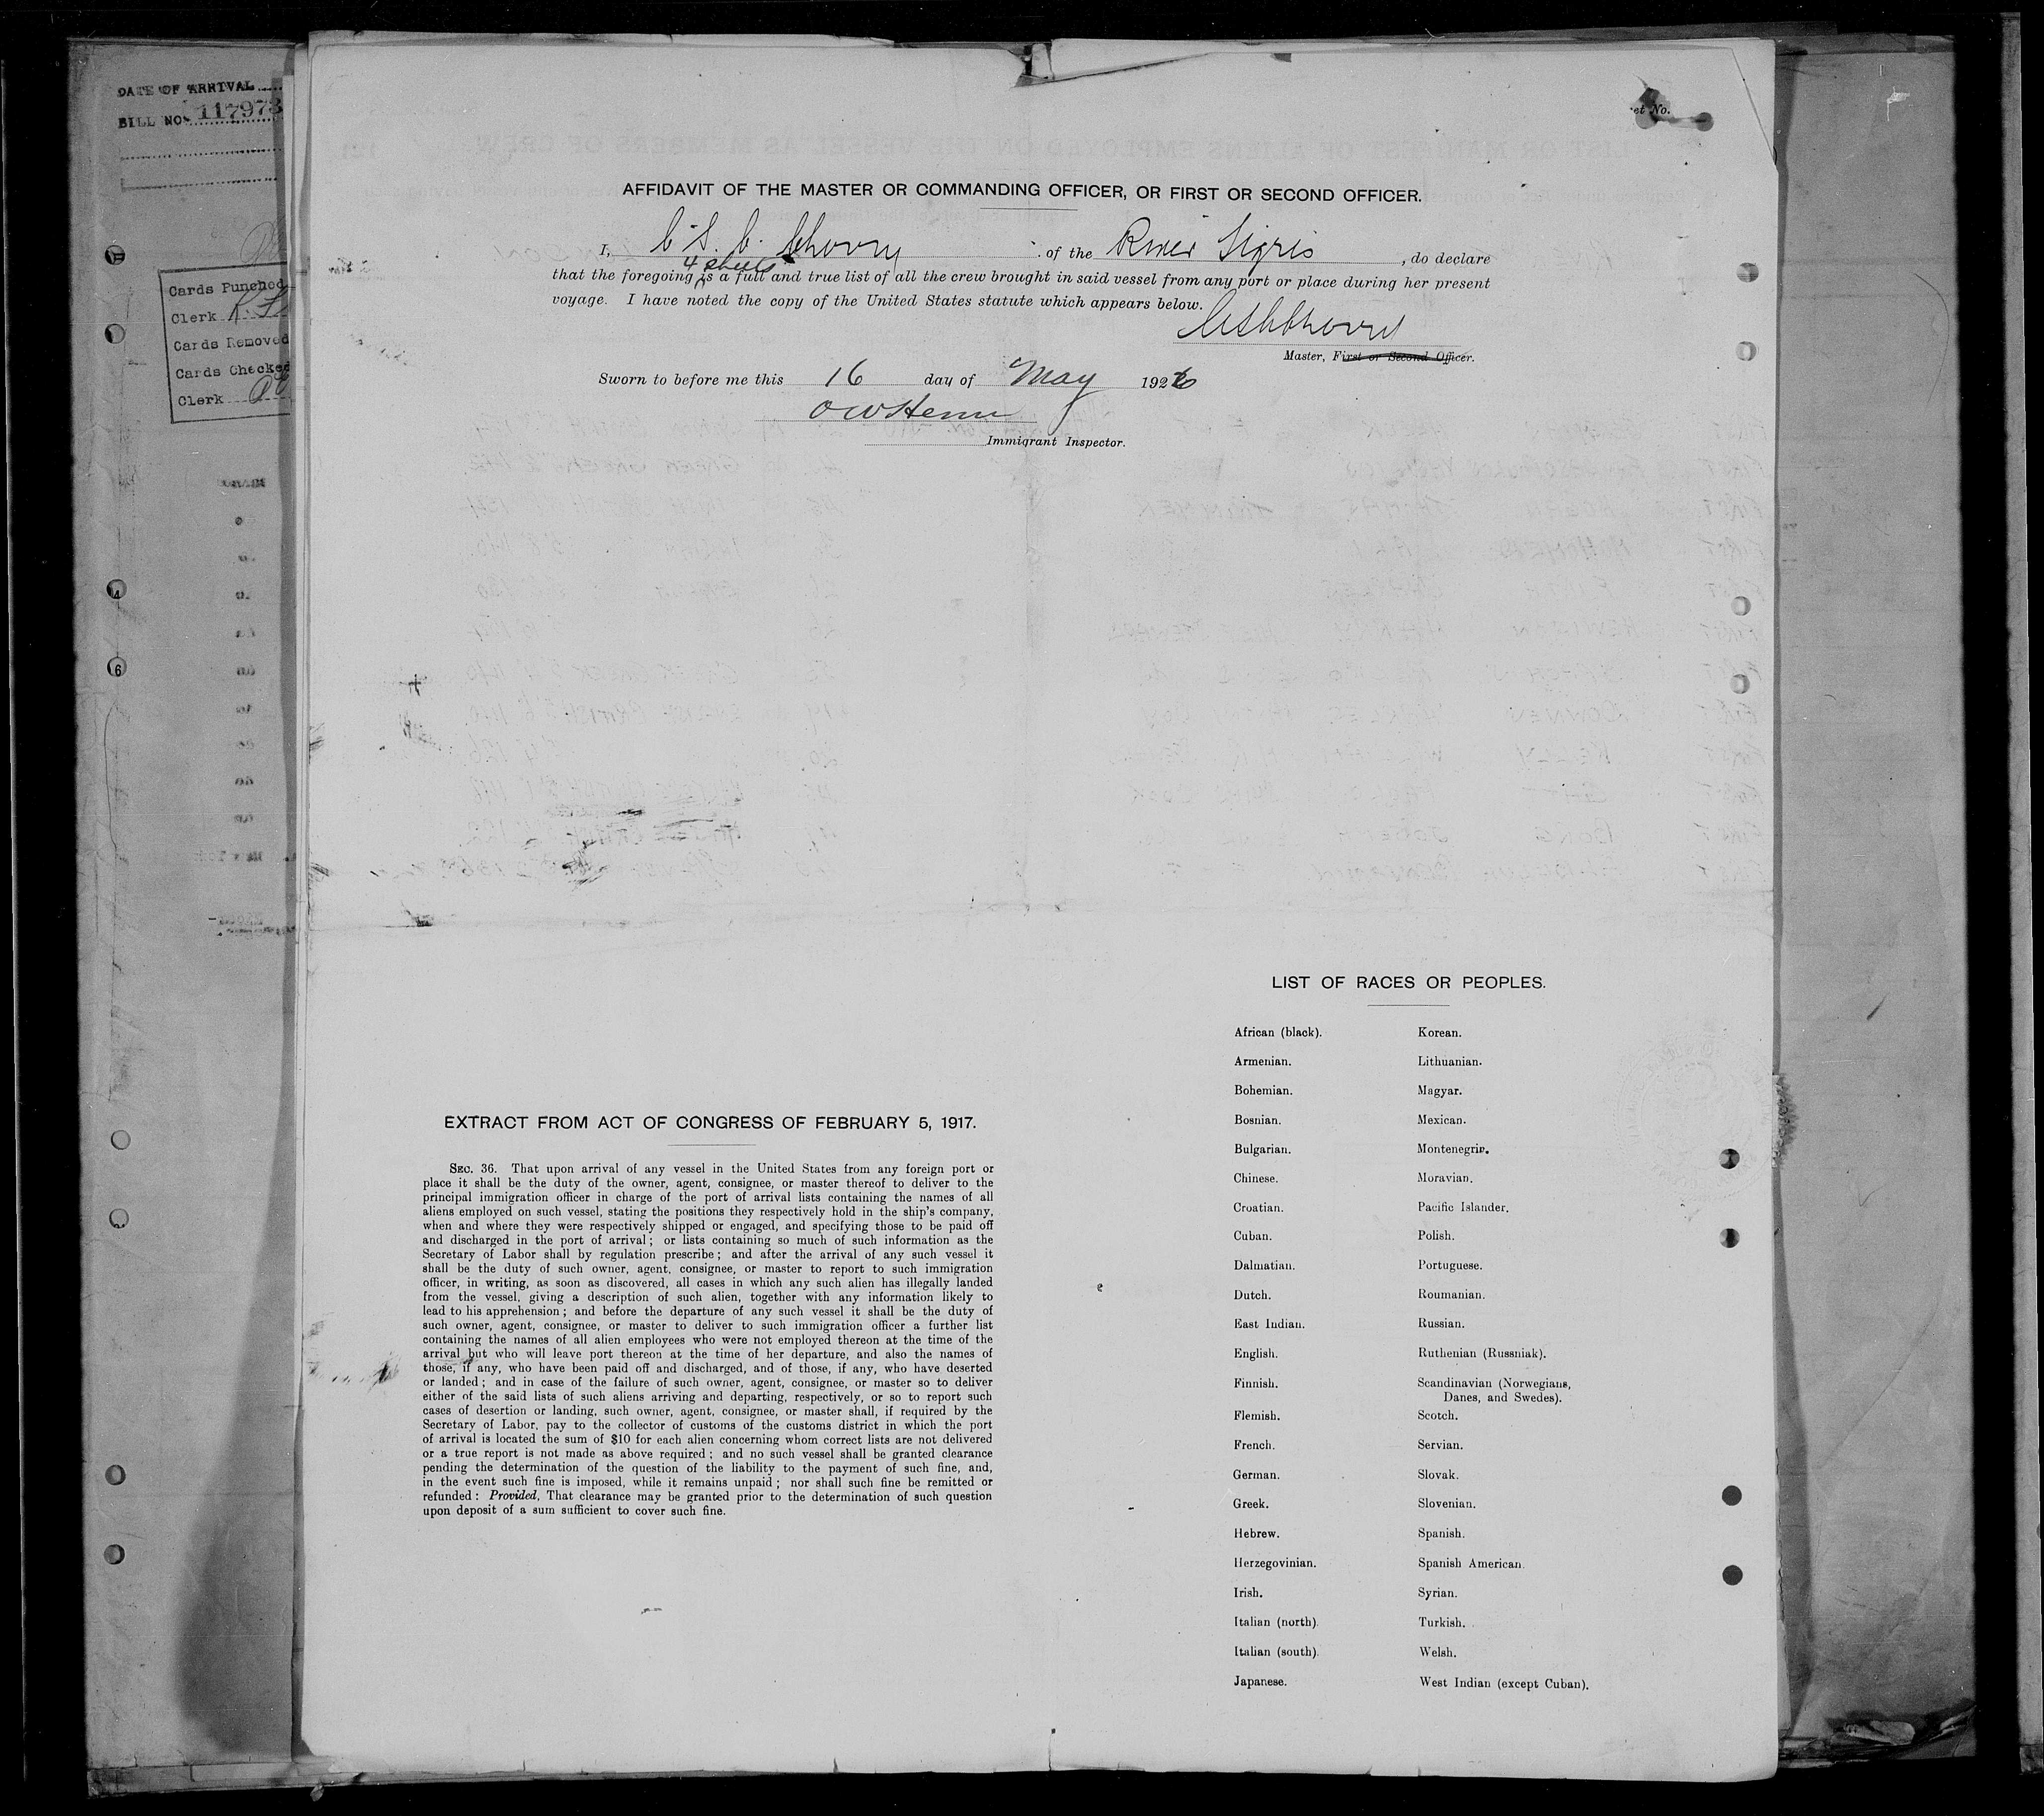 DATE OF ARRIVAL
BILL NO. 117973
Cards Punched
Clerk
Cards Removed
Cards Checked
Clerk
et No.
AFFIDAVIT OF THE MASTER OR COMMANDING OFFICER, OR FIRST OR SECOND OFFICER.
I, C. S. C. of the River Tigris, do declare
4 sheets
that the foregoing is a full and true list of all the crew brought in said vessel from any port or place during her present
voyage. I have noted the copy of the United States statute which appears below.
Master, First or Second Officer.
Sworn to before me this 16 day of May 1926
Immigrant Inspector.
LIST OF RACES OR PEOPLES.
African (black). Korean.
Armenian. Lithuanian.
Bohemian. Magyar.
Bosnian. Mexican.
Bulgarian. Montenegrin.
Chinese. Moravian.
Croatian. Pacific Islander.
Cuban. Polish.
Dalmatian. Portuguese.
Dutch. Roumanian.
East Indian. Russian.
English. Ruthenian (Russniak).
Finnish. Scandinavian (Norwegians,
Danes, and Swedes).
Flemish. Scotch.
French. Servian.
German. Slovak.
Greek. Slovenian.
Hebrew. Spanish.
Herzegovinian. Spanish American.
Irish. Syrian.
Italian (north). Turkish.
Italian (south). Welsh.
Japanese. West Indian (except Cuban).
EXTRACT FROM ACT OF CONGRESS OF FEBRUARY 5, 1917.
SEC. 36. That upon arrival of any vessel in the United States from any foreign port or
place it shall be the duty of the owner, agent, consignee, or master thereof to deliver to the
principal immigration officer in charge of the port of arrival lists containing the names of all
aliens employed on such vessel, stating the positions they respectively hold in the ship's company,
when and where they were respectively shipped or engaged, and specifying those to be paid off
and discharged in the port of arrival; or lists containing so much of such information as the
Secretary of Labor shall by regulation prescribe; and after the arrival of any such vessel it
shall be the duty of such owner, agent, consignee, or master to report to such immigration
officer, in writing, as soon as discovered, all cases in which any such alien has illegally landed
from the vessel, giving a description of such alien, together with any information likely to
lead to his apprehension; and before the departure of any such vessel it shall be the duty of
such owner, agent, consignee, or master to deliver to such immigration officer a further list
containing the names of all alien employees who were not employed thereon at the time of the
arrival but who will leave port thereon at the time of her departure, and also the names of
those, if any, who have been paid off and discharged, and of those, if any, who have deserted
or landed; and in case of the failure of such owner, agent, consignee, or master so to deliver
either of the said lists of such aliens arriving and departing, respectively, or so to report such
cases of desertion or landing, such owner, agent, consignee, or master shall, if required by the
Secretary of Labor, pay to the collector of customs of the customs district in which the port
of arrival is located the sum of $10 for each alien concerning whom correct lists are not delivered
or a true report is not made as above required; and no such vessel shall be granted clearance
pending the determination of the question of the liability to the payment of such fine, and,
in the event such fine is imposed, while it remains unpaid; nor shall such fine be remitted or
refunded: Provided, That clearance may be granted prior to the determination of such question
upon deposit of a sum sufficient to cover such fine.